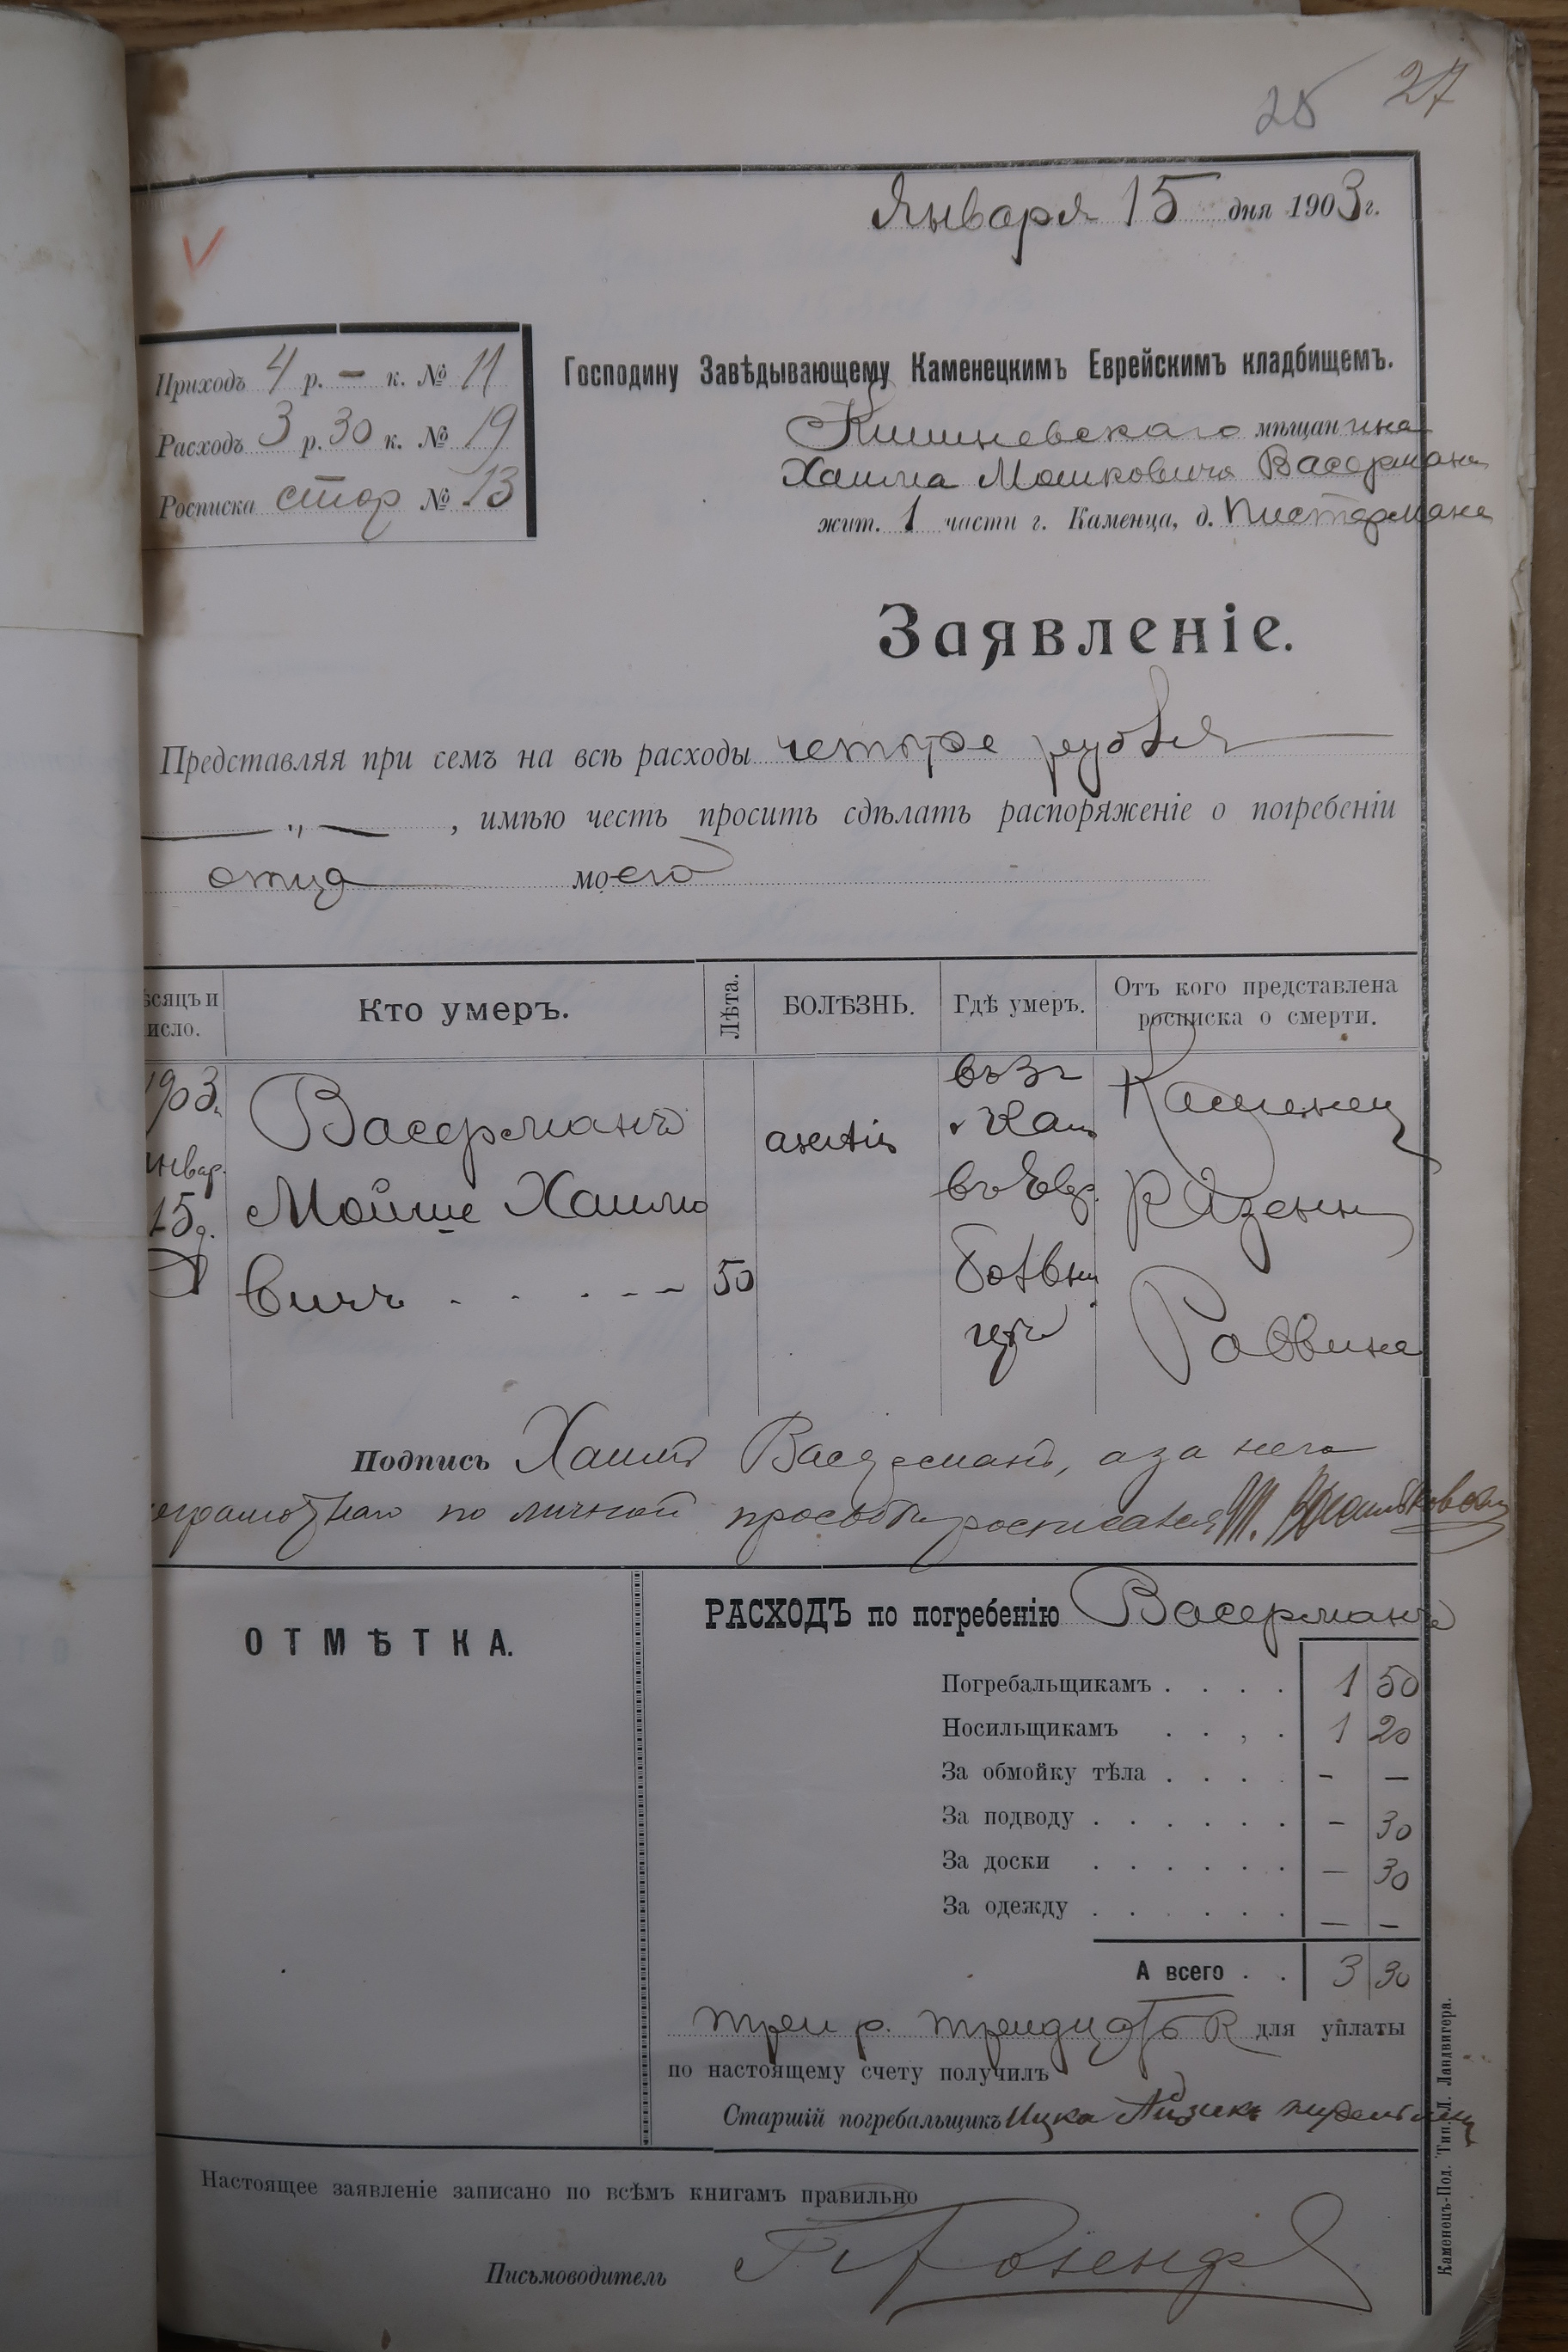 28 27
Января 15 дня 1903 г.
Приходъ 4 р. – к. № 11
Расходъ 3 р. 30 к. № 19
Росписка стор № 13
Господину Завѣдывающему Каменецкимъ Еврейскимъ кладбищемъ.
Кишиневскаго мѣщанина
Хаима Мошковича Васермана
жит. 1 части г. Каменца, д. Пистермана
Заявленіе.
Представляя при семъ на всѣ расходы четыре рубля
— „ — , имѣю честь просить сдѣлать распоряженіе о погребеніи
отца моего
ѣсяцъ и исло.
Кто умеръ.
Лѣта.
БОЛѢЗНЬ.
Гдѣ умеръ.
Отъ кого представлена росписка о смерти.
1903 г.
нвар.
15 д.
Васерманъ
Мойше Хаимо
вичъ . . . - - - 50
въ Зг
Кам
въ Евр.
Каменец
Казенн
Раввина
Подпись Хаимъ Васерманъ, а за него
еграмотнаго по личной просьбѣ росписался
ОТМѢТКА.
РАСХОДЪ по погребенію Васерманъ
Погребальщикамъ . . . . 1 50
Носильщикамъ . . , . 1 20
За обмойку тѣла . . . . – —
За подводу . . . . . . – 30
За доски . . . . . . — 30
За одежду . . . . . . — –
А всего . . 3 30
три р. тридцать к для уплаты
по настоящему счету получилъ
Старшій погребальщикъ Ицко Айзикъ
Настоящее заявленіе записано по всѣмъ книгамъ правильно
Письмоводитель
Каменецъ-Под. Тип. Л. Ландвигера.